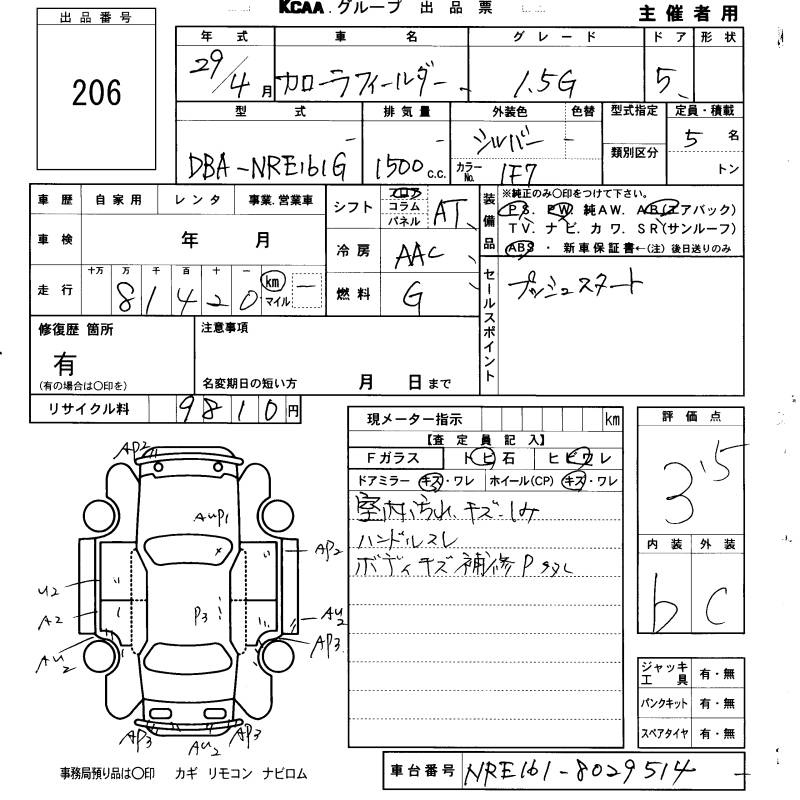 KCAA.グループ 出品票
主催者用
出品番号
206
年式 車名 グレード ドア 形状
29/4月 カローラフィールダー 1.5G 5
型式 排気量 外装色 色替 型式指定 定員・積載
DBA-NRE161G 1500c.c. シルバー カラーNo. 1F7 類別区分 5名
トン
車歴 自家用 レンタ 事業.営業車
シフト フロア コラム パネル AT
装備品 ※純正のみ○印をつけて下さい。
PS. PW. 純AW. AB(エアバック)
TV. ナビ. カワ. SR(サンルーフ)
ABS ・ 新車保証書←(注) 後日送りのみ
車検 年 月
冷房 AAC
走行 十万 万 千 百 十 一
81420 km マイル
燃料 G
セールスポイント プッシュスタート
修復歴箇所 注意事項
有
(有の場合は○印を) 名変期日の短い方 月 日まで
リサイクル料 9810円
現メーター指示 km
【査定員記入】
Fガラス トビ石 ヒビワレ
ドアミラー キズ・ワレ ホイール(CP) キズ・ワレ
室内汚れ、キズ・しみ
ハンドルスレ
ボディキズ補修P
評価点
3.5
内装 外装
b C
AP2
AUP1
AP2
U2
A2
P3
AU2
AU2
AP3
AP3
AU2
AP3
ジャッキ工具 有・無
パンクキット 有・無
スペアタイヤ 有・無
事務局預り品は○印 カギ リモコン ナビロム
車台番号 NRE161-8029514